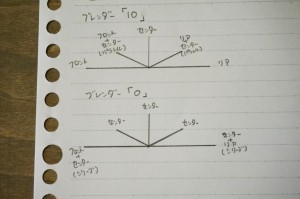 ブレンダー「10」
フロント
+
センター
(パラレル)
センター
リア
+
センター
(パラレル)
フロント
リア
ブレンダー「0」
センター
センター
センター
フロント
+
センター
(シリーズ)
センター
+
リア
(シリーズ)